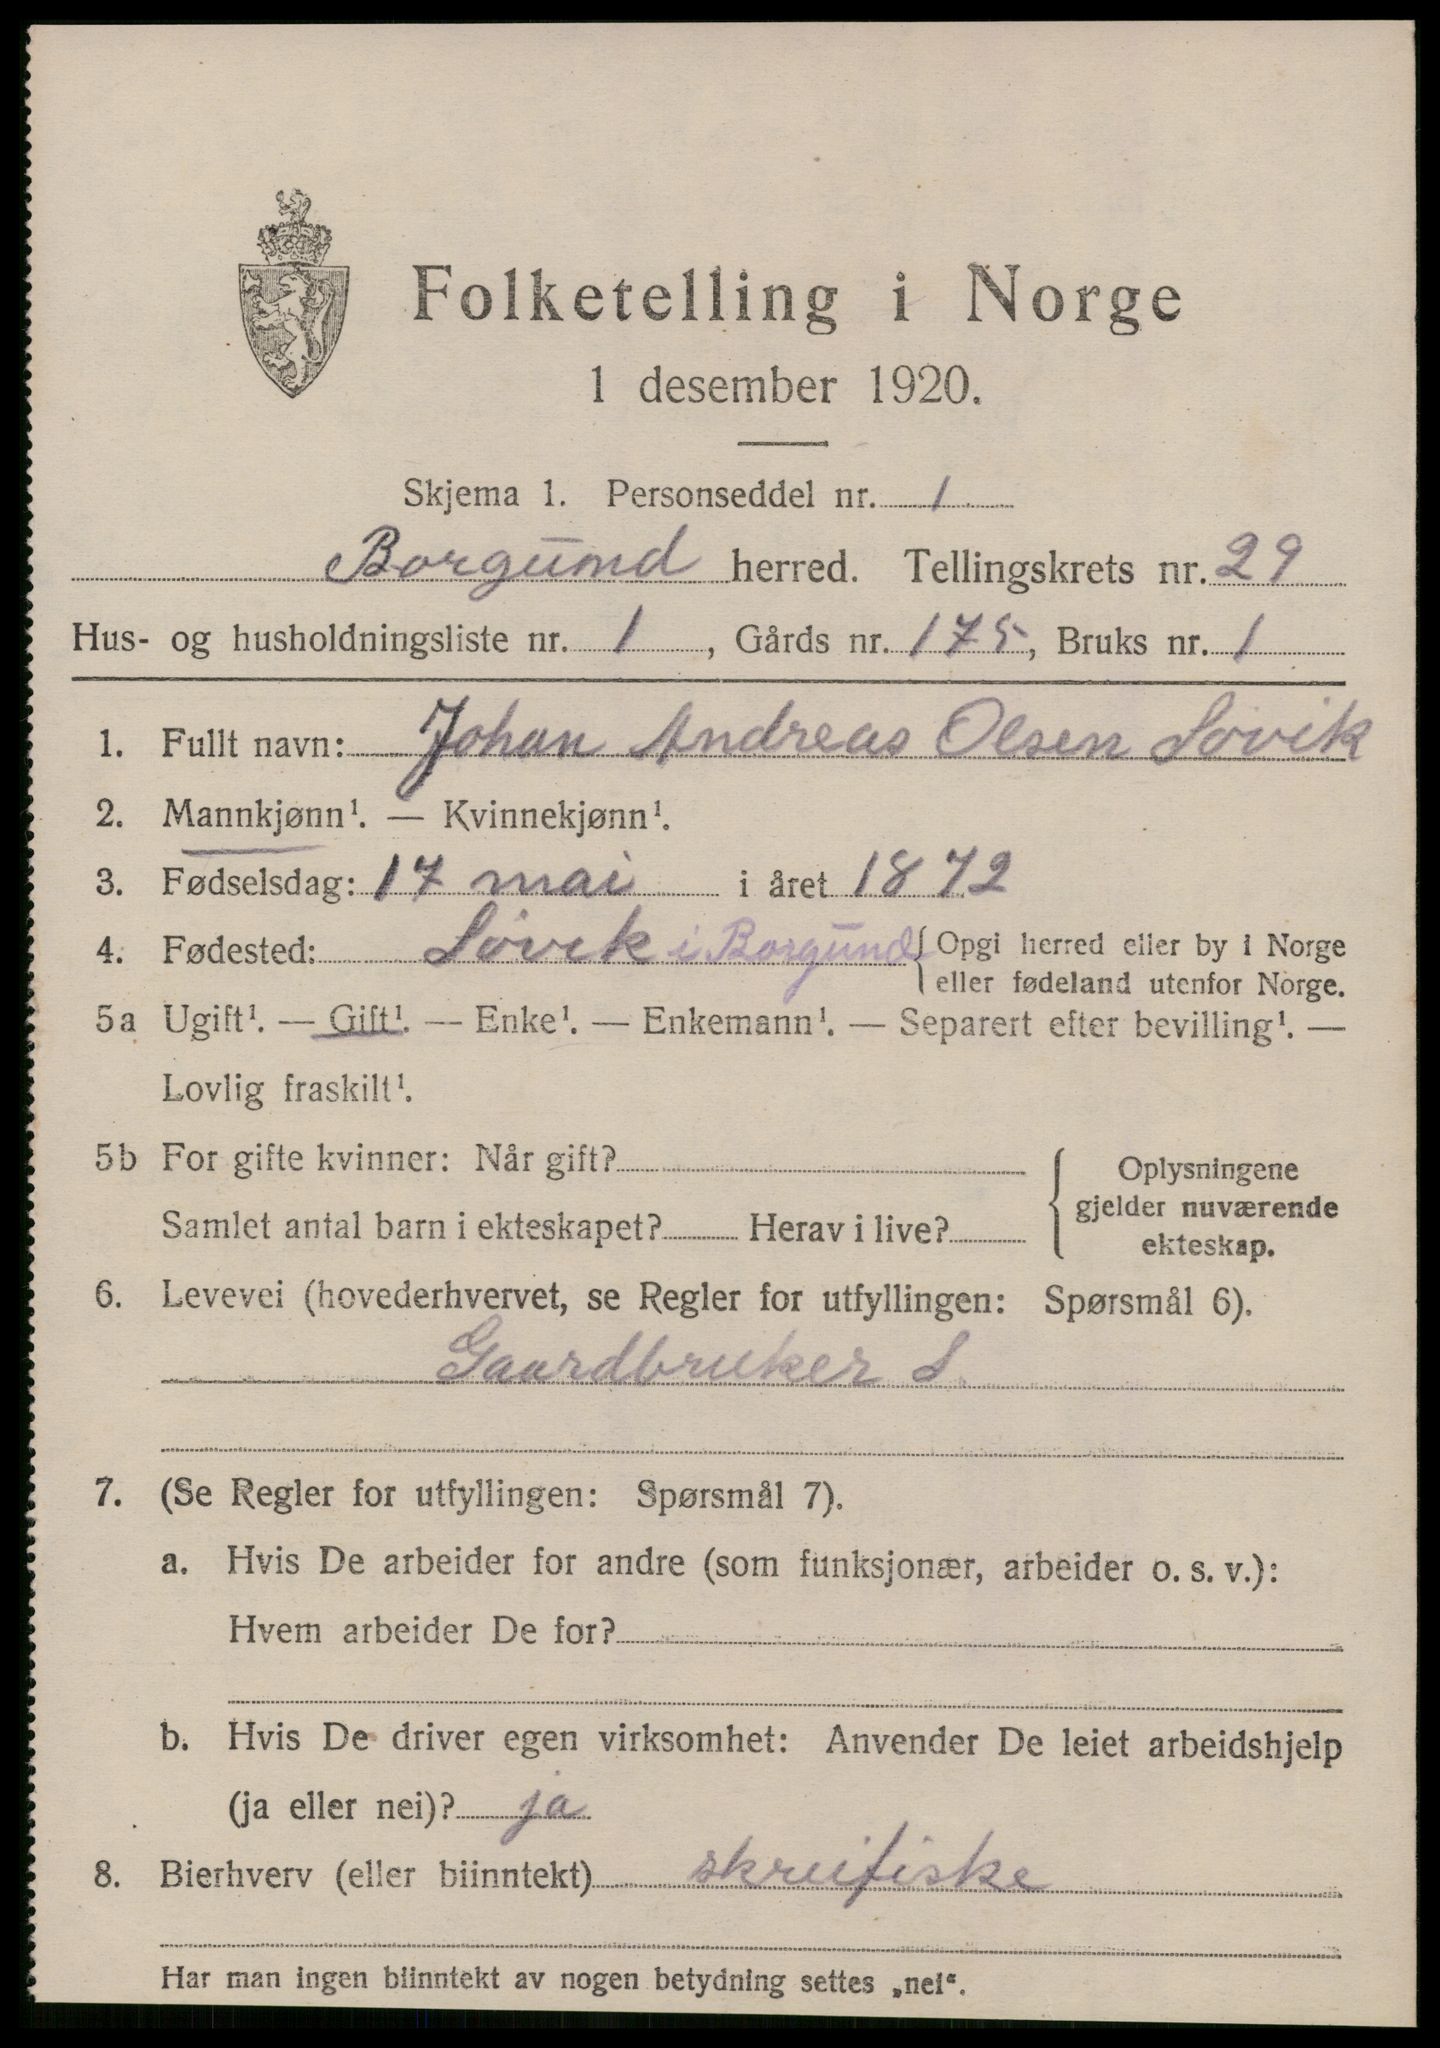 Folketelling i Norge
1 desember 1920.
Skjema 1. Personseddel nr. 1
Borgund herred. Tellingskrets nr. 29
Hus- og husholdningsliste nr. 1, Gårds nr. 175, Bruks nr. 1
1. Fullt navn: Johan Andreas Olsen Løvik
2. Mannkjønn¹. — Kvinnekjønn¹.
3. Fødselsdag: 17 mai i året 1872
4. Fødested: Løvik i Borgund { Opgi herred eller by i Norge
eller fødeland utenfor Norge.
5a Ugift¹. — Gift¹. — Enke¹. — Enkemann¹. — Separert efter bevilling¹. —
Lovlig fraskilt¹.
5b For gifte kvinner: Når gift?
Samlet antal barn i ekteskapet? Herav i live?
Oplysningene
gjelder nuværende
ekteskap.
6. Levevei (hovederhvervet, se Regler for utfyllingen: Spørsmål 6).
Gaardbruker S.
7. (Se Regler for utfyllingen: Spørsmål 7).
a. Hvis De arbeider for andre (som funksjonær, arbeider o. s. v.):
Hvem arbeider De for?
b. Hvis De driver egen virksomhet: Anvender De leiet arbeidshjelp
(ja eller nei)? ja
8. Bierhverv (eller biinntekt) skreifiske
Har man ingen biinntekt av nogen betydning settes „nei“.